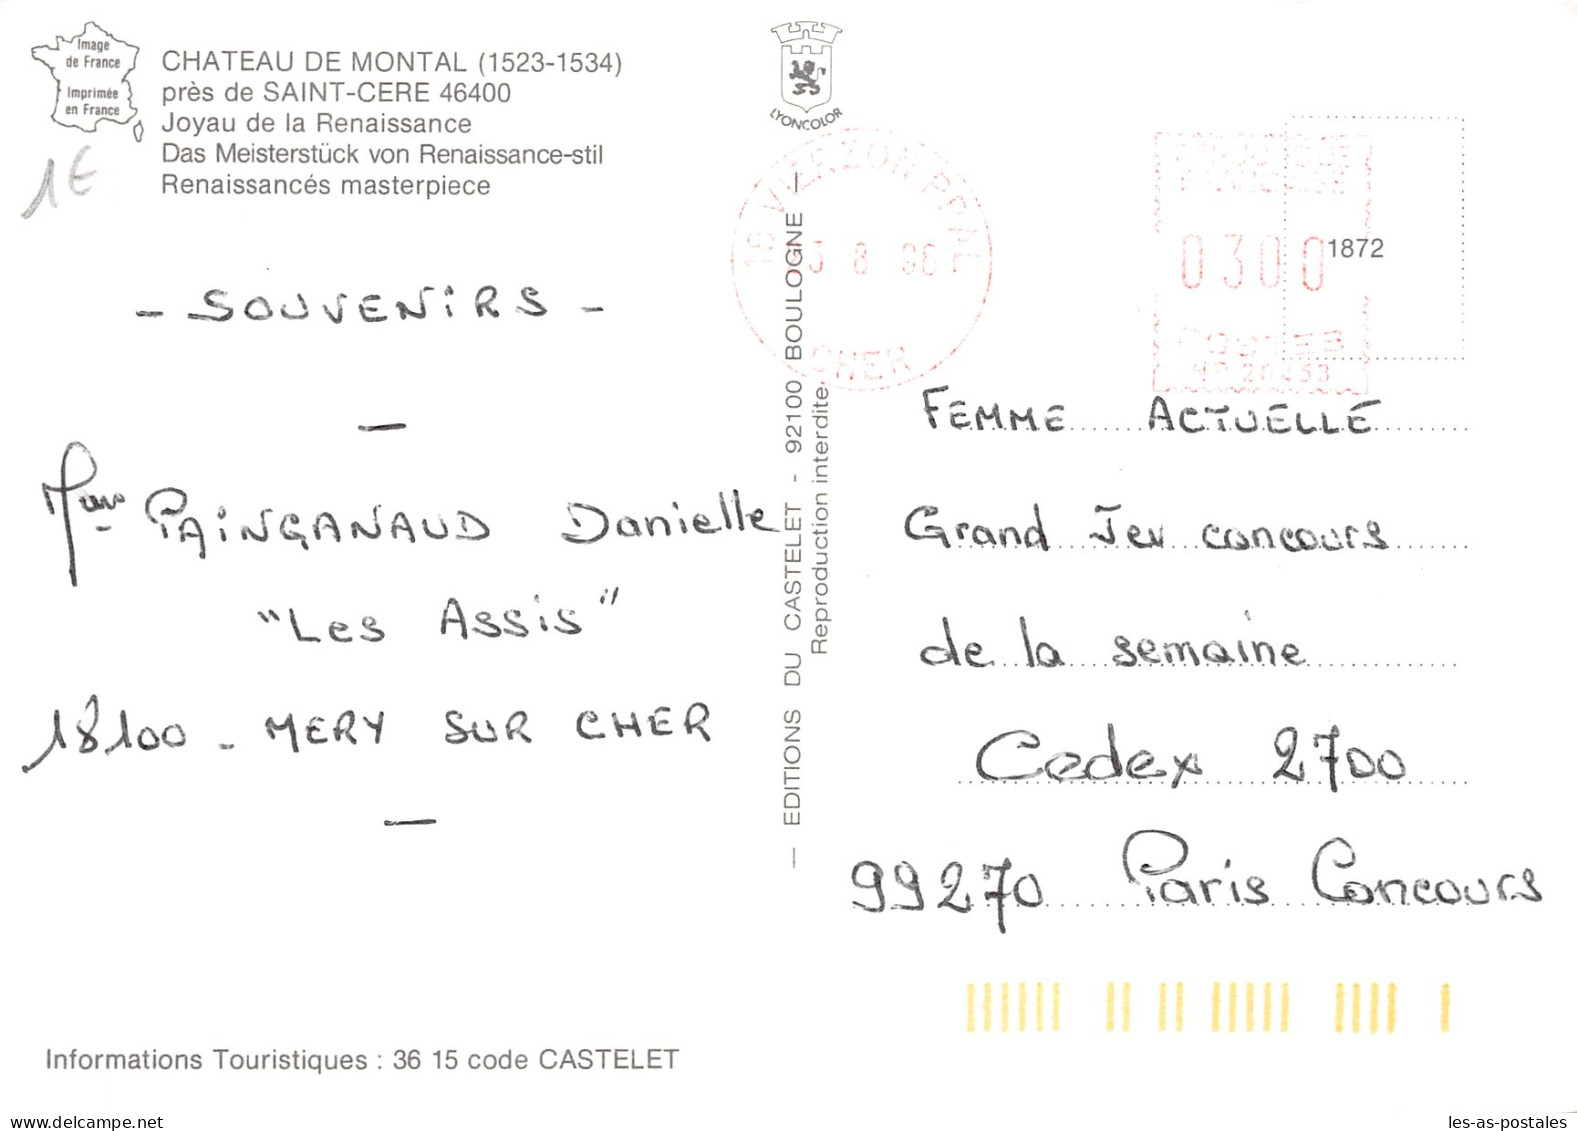 Image
de France
Imprimée
en France
CHATEAU DE MONTAL (1523-1534)
près de SAINT-CERE 46400
Joyau de la Renaissance
Das Meisterstück von Renaissance-stil
Renaissancés masterpiece
1€
- SOUVENIRS -
Mme PAINGANAUD Danielle
"Les Assis"
18100 - MERY SUR CHER
Informations Touristiques : 36 15 code CASTELET
LYONCOLOR
— EDITIONS DU CASTELET - 92100 BOULOGNE —
Reproduction interdite
18 VIERZON PPAL
3 8 98
CHER
0300
POSTES
1872
FEMME ACTUELLE
Grand Jeu concours
de la semaine
Cedex 2700
99270 Paris Concours
les-as-postales